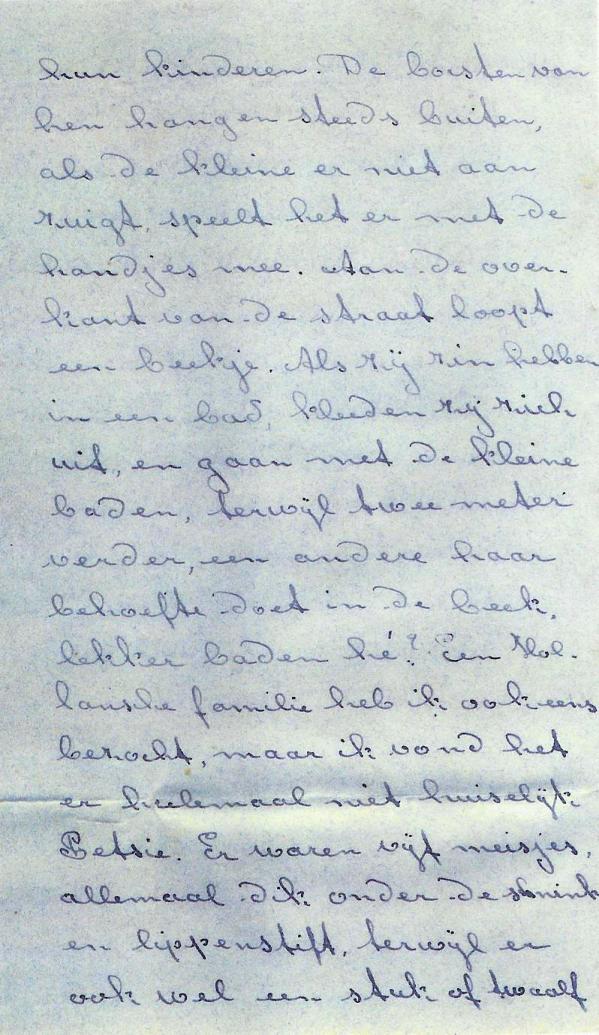 hun kinderen. De borsten van
hen hangen steeds buiten,
als de kleine er niet aan
zuigt, speelt het er met de
handjes mee. Aan de over-
kant van de straat loopt
een beekje. Als zij zin hebben
in een bad, kleeden zij zich
uit, en gaan met de kleine
baden, terwijl twee meter
verder, een andere haar
behoefte doet in de beek,
lekker baden hé? Een Hol-
lanske familie heb ik ook eens
bezocht, maar ik vond het
er heelemaal niet huiselijk
Betsie. Er waren vijf meisjes,
allemaal dik onder de smink
en lippenstift, terwijl er
ook wel een stuk of twaalf